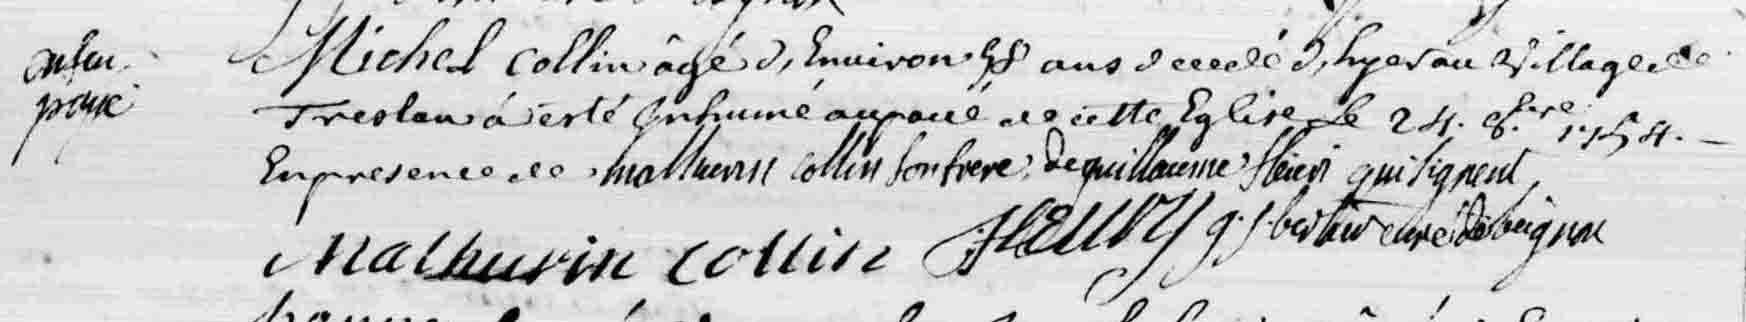 Michel Collin âgé d'Environ 58 ans decedé d'hyer au Village de
Treslan à esté Inhumé au paué de cette Eglise le 24. 8.bre 1754.
En presence de mathurin Collin son frere, de guillaume fleuri qui signent,
Mathurin Collin Fleury g. j. bertin curé de beignon
paye